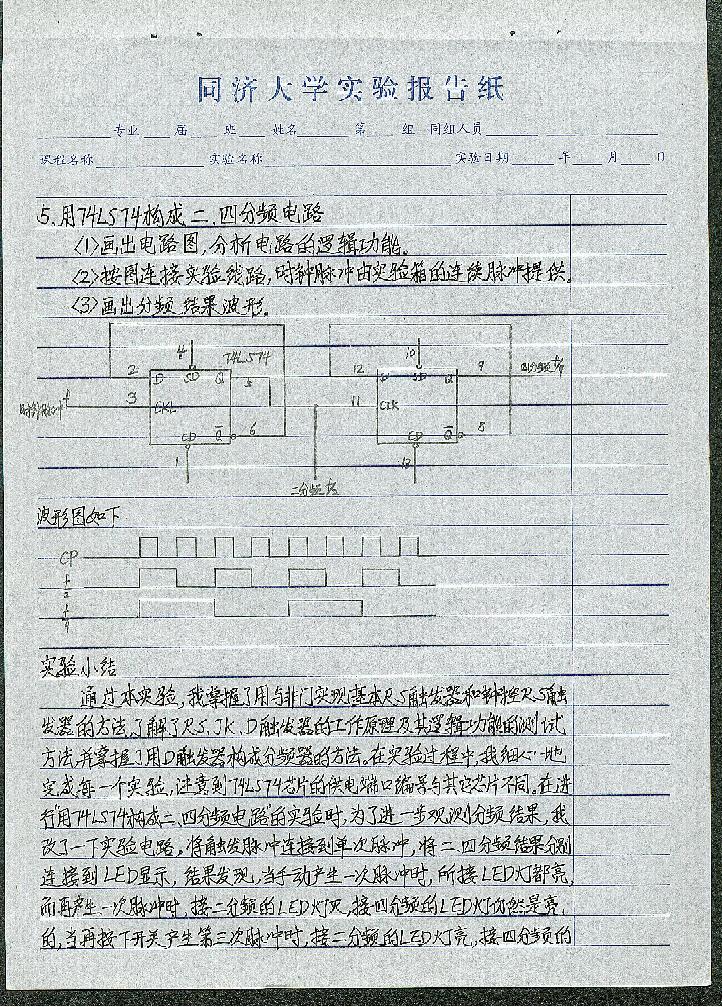 同济大学实验报告纸
专业 届 班 姓名 第 组 同组人员
课程名称 实验名称 实验日期 年 月 日
5.用74LS74构成二、四分频电路
<1>画出电路图,分析电路的逻辑功能。
<2>按图连接实验线路,时钟脉冲由实验箱的连续脉冲提供。
<3>画出分频结果波形。
4 74LS74 10
2 D SD Q 5 12 D SD Q 9 四分频
3 CKL 11 CLK
CD Q̅ 6 CD Q̅ 8
1 13
二分频
波形图如下
CP
f/2
f/4
实验小结
通过本实验,我掌握了用与非门实现基本RS触发器和钟控RS触
发器的方法,了解了RS、JK、D触发器的工作原理及其逻辑功能的测试
方法,并掌握了用D触发器构成分频器的方法。在实验过程中,我细心地
完成每一个实验,注意到74LS74芯片的供电端口编号与其它芯片不同。在进
行"用74LS74构成二、四分频电路"的实验时,为了进一步观测分频结果,我
改了一下实验电路,将触发脉冲连接到单次脉冲,将二、四分频结果分别
连接到LED显示,结果发现,当手动产生一次脉冲时,所接LED灯都亮,
而再产生一次脉冲时,接二分频的LED灯灭,接四分频的LED灯仍然是亮
的,当再按下开关产生第三次脉冲时,接二分频的LED灯亮,接四分频的